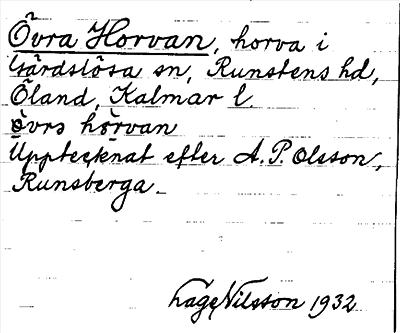 Övra Horvan, horva i
Gärdslösa sn, Runstens hd,
Öland, Kalmar l
övrɘ hörvan
Upptecknat efter A. P. Olsson,
Runsberga.
Lage Nilsson 1932